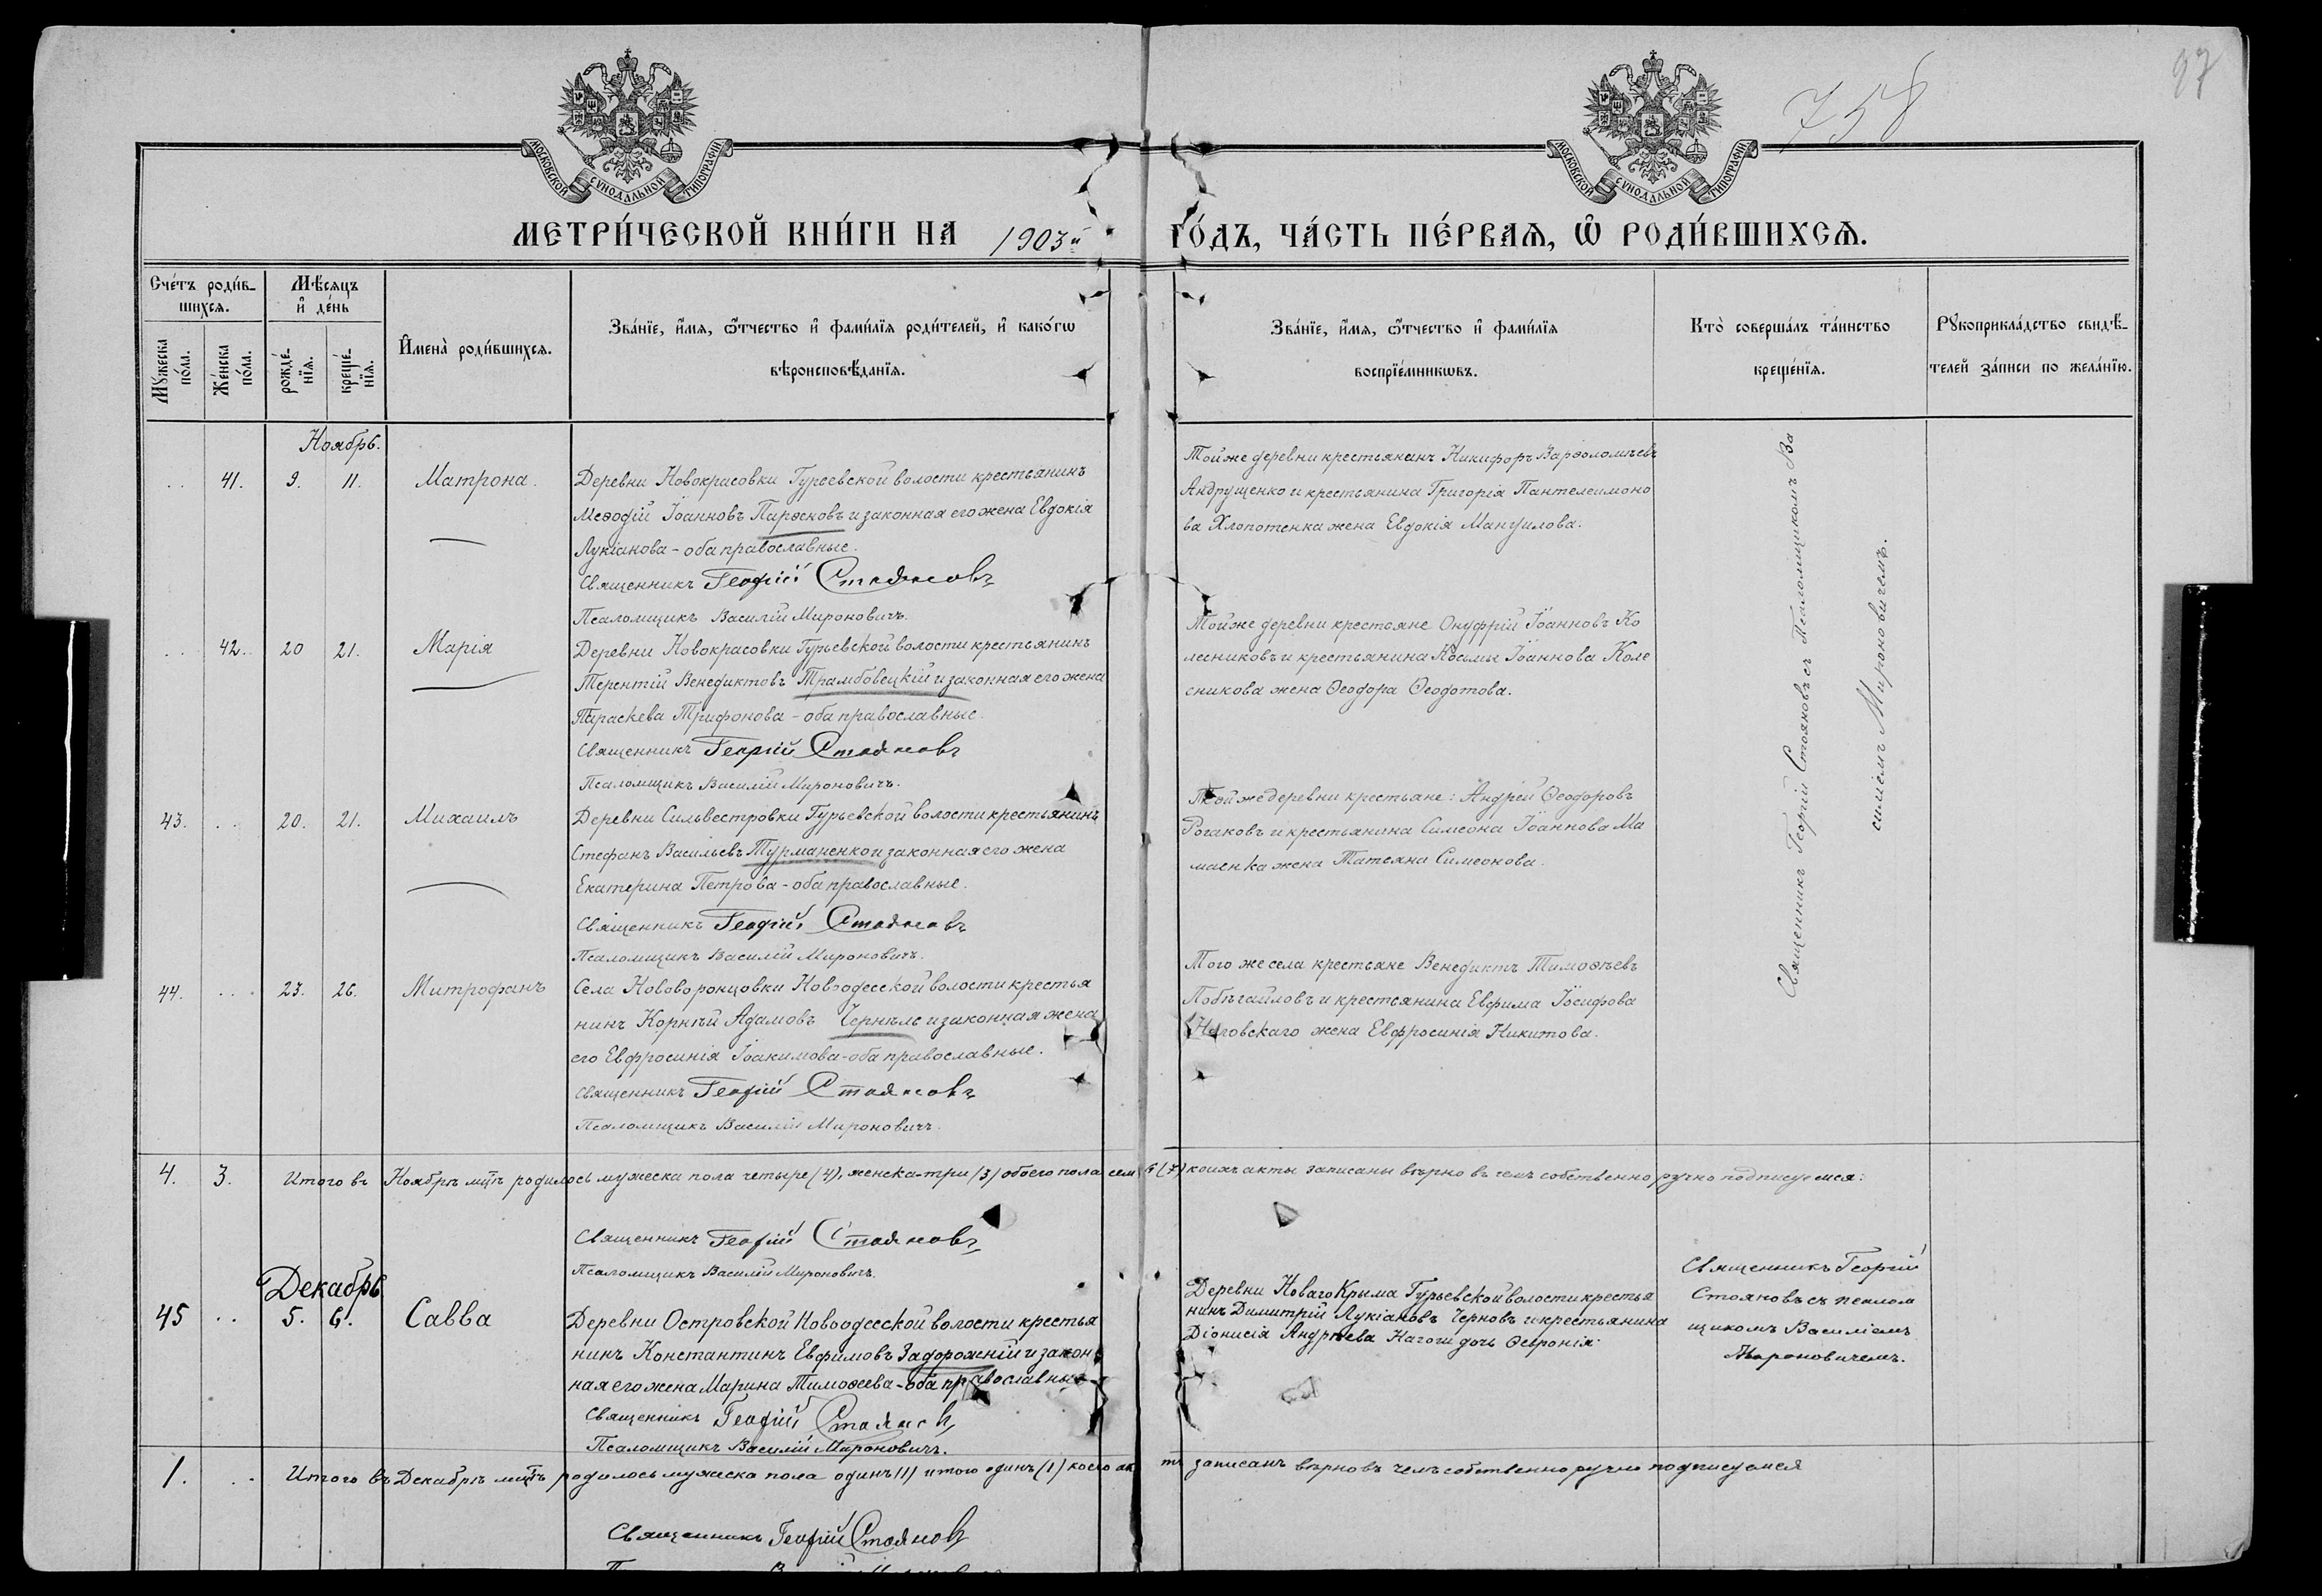 758
97
МОСКОВСКОЙ СѴНОДАЛЬНОЙ ТИПОГРАФІИ
МОСКОВСКОЙ СѴНОДАЛЬНОЙ ТИПОГРАФІИ
МЕТРИ́ЧЕСКОЙ КНИ́ГИ НА 1903й ГО́ДЪ, ЧА́СТЬ ПЕ́РВАѦ, Ѡ҆ РОДИ́ВШИХСѦ.
Сче́тъ роди́в-
шихсѧ.
Мꙋжеска по́ла.
Же́нска по́ла.
Мѣ́сѧцъ
и҆ де́нь
рожде́-
нїѧ.
креще́-
нїѧ.
И҆мена̀ роди́вшихсѧ.
Зва́нїе, и҆́мѧ, ѻ҆́тчество и҆ фами́лїѧ роди́телей, и҆ како́гѡ
вѣроисповѣ́данїѧ.
Зва́нїе, и҆́мѧ, ѻ҆́тчество и҆ фами́лїѧ
воспрїе́мникѡвъ.
Кто̀ соверша́лъ та́инство
креще́нїѧ.
Рꙋкоприкла́дство свидѣ́-
телей за́писи по жела́нїю.
Ноябрь.
41. 9. 11. Матрона.
Деревни Новокрасовки Гурьевской волости крестьянинъ
Меѳодій Іоанновъ и законная его жена Евдокія
Лукіанова - оба православные.
Священникъ Георгій Стояновъ
Псаломщикъ Василій Мироновичъ.
Той же деревни крестьянинъ Никифоръ Варѳоломѣевъ
Андрущенко и крестьянина Григорія Пантелеимоно
ва Хлопотенка жена Евдокія Мануилова.
42. 20 21. Марія
Деревни Новокрасовки Гурьевской волости крестьянинъ
Терентій Венедиктовъ Трамбовецкій и законная его жена
Параскева Трифонова - оба православные.
Священникъ Георгій Стояновъ
Псаломщикъ Василій Мироновичъ.
Той же деревни крестьяне Онуфрій Іоанновъ Ко
лесниковъ и крестьянина Косьмы Іоаннова Коле
сникова жена Ѳеодора Ѳеодотова.
43. 20. 21. Михаилъ
Деревни Сильвестровки Гурьевской волости крестьянинъ
Стефанъ Васильевъ Турманенко и законная его жена
Екатерина Петрова - оба православные.
Священникъ Георгій Стояновъ
Псаломщикъ Василій Мироновичъ.
Той же деревни крестьяне: Андрей Ѳеодоровъ
Рогаковъ и крестьянина Симеона Іоаннова Ма
маенка жена Татьяна Симеонова.
44. 23. 26. Митрофанъ
Села Нововоронцовки Новоодесской волости крестья
нинъ Корнѣй Адамовъ Чернѣль и законная жена
его Евфросинія Іоакимова - оба православные.
Священникъ Георгій Стояновъ
Псаломщикъ Василій Мироновичъ.
Того же села крестьяне Венедиктъ Тимоѳѣевъ
Побѣгайловъ и крестьянина Евфима Іосифова
жена Евфросинія Никитова.
Священникъ Георгій Стояновъ съ Псаломщикомъ Ва
силіемъ Мироновичемъ.
4. 3. Итого въ Ноябрѣ мцѣ родилось мужеска пола четыре (4), женска - три (3) обоего пола семь (7) коихъ акты записаны вѣрно въ чемъ собственно ручно подписуемся:
Священникъ Георгій Стояновъ
Псаломщикъ Василій Мироновичъ.
Декабрь
45 5. 6. Савва
Деревни Островской Новоодесской волости крестья
нинъ Константинъ Евфимовъ Задорожній и закон
ная его жена Марина Тимоѳеева - оба православные
Священникъ Георгій Стояновъ
Псаломщикъ Василій Мироновичъ.
Деревни Новаго Крыма Гурьевской волости крестья
нинъ Димитрій Лукіановъ Черновъ и крестьянина
Діонисія Андрѣева Нагоги дочь Ѳевронія.
Священникъ Георгій
Стояновъ съ псалом
щикомъ Василіемъ
Мироновичемъ.
1. Итого въ Декабрѣ мцѣ родилось мужеска пола одинъ (1) итого одинъ (1) коего актъ записанъ вѣрно въ чемъ собственно ручно подписуемся
Священникъ Георгій Стояновъ